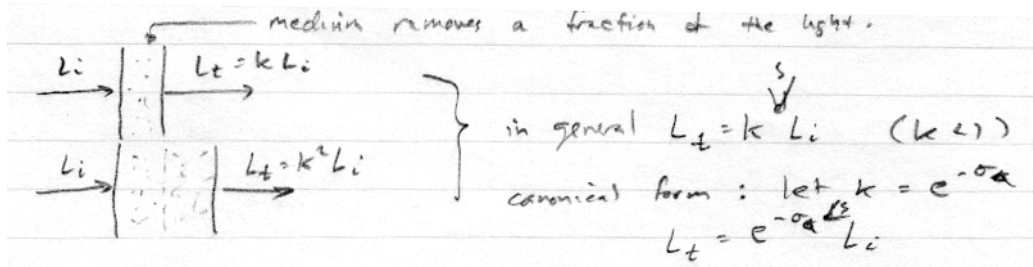 medium removes a fraction of the light.
Li Lt = k Li
Li Lt = k² Li
in general Lt = k^s Li (k < 1)
canonical form : let k = e^-σa
Lt = e^-σa s Li